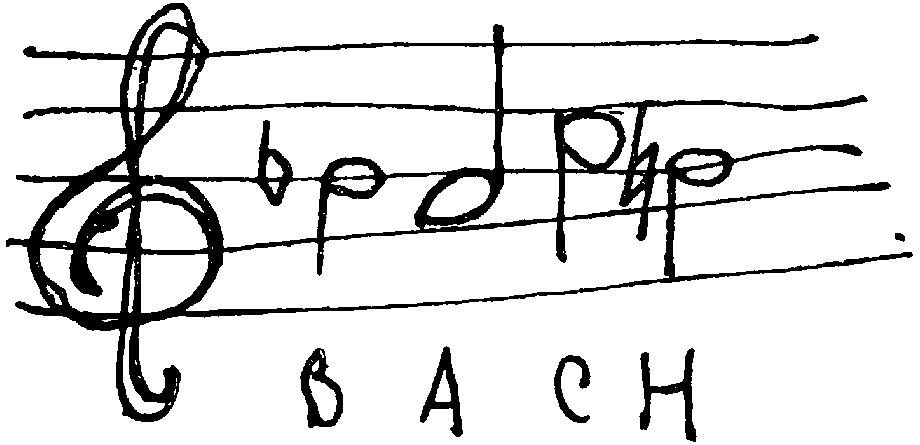 B A C H